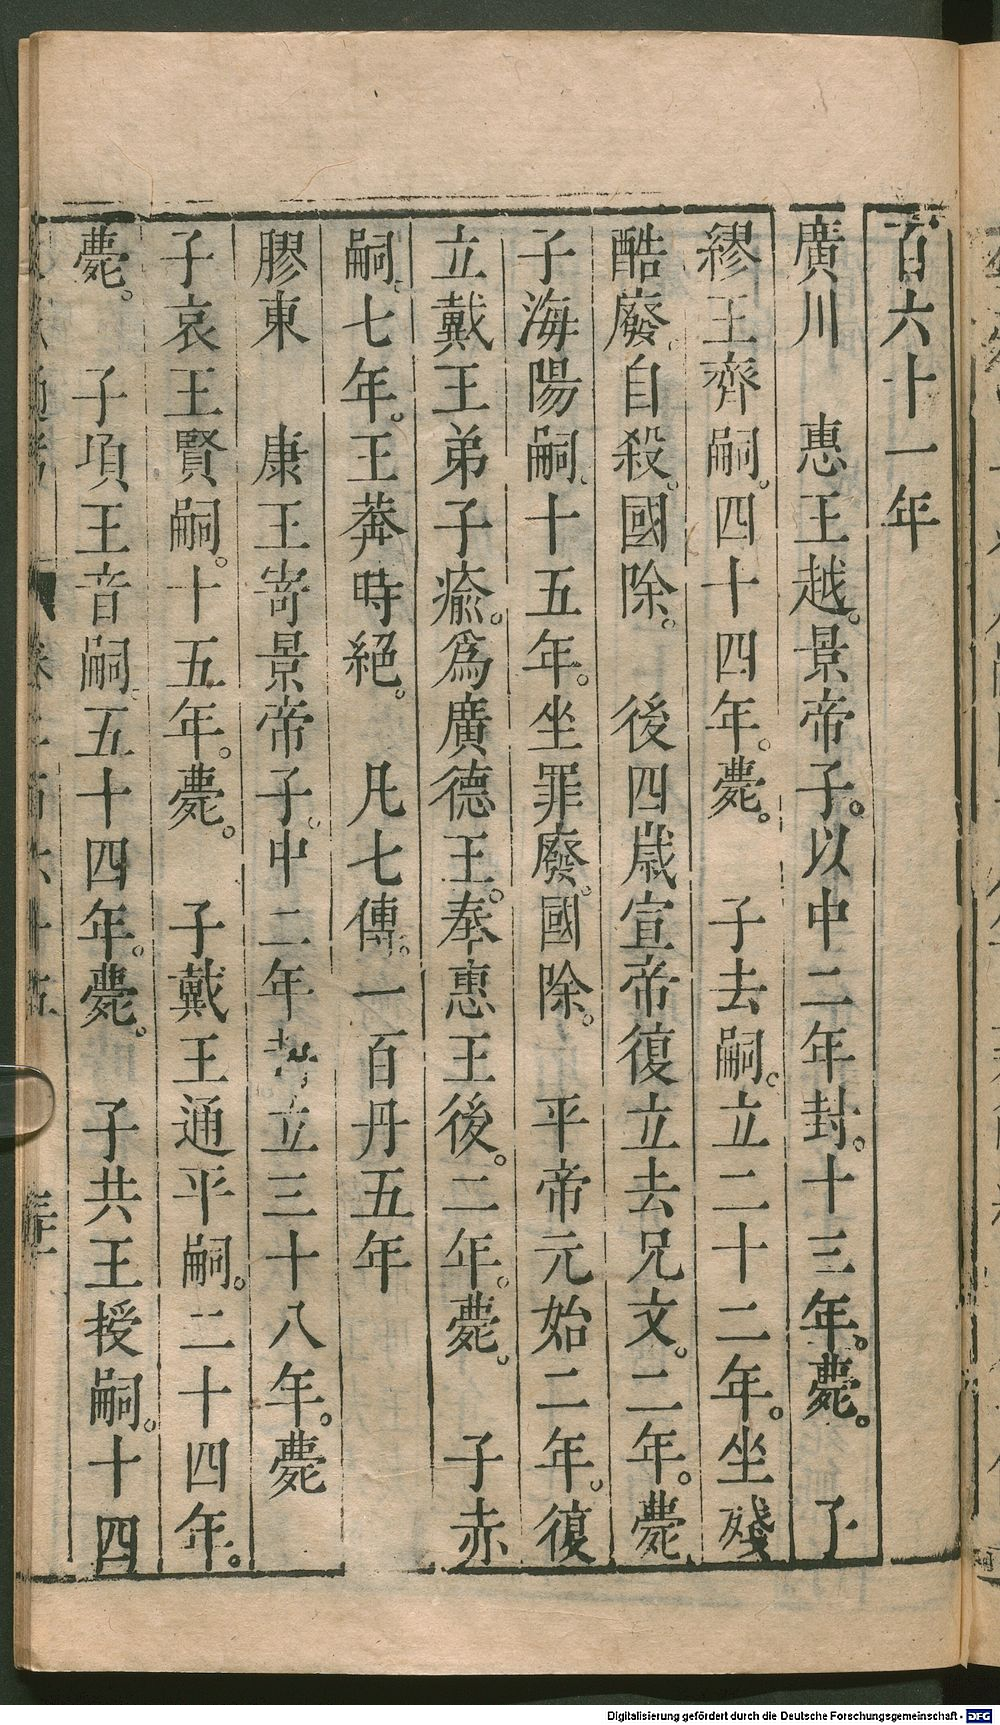 百六十一年
廣川　惠王越。景帝子。以中二年封。十三年。薨。　子
繆王齊嗣。四十四年。薨。　子去嗣。立二十二年。坐殘
酷廢。自殺。國除。　後四歲宣帝復立去兄文。二年。薨
子海陽嗣。十五年。坐罪廢。國除。　平帝元始二年。復
立戴王弟子瘉。爲廣德王。奉惠王後。二年。薨。　子赤
嗣。七年。王莽時絕。　凡七傳。一百丹五年
膠東　康王寄景帝子。中二年立三十八年。薨
子哀王賢嗣。十五年。薨。　子戴王通平嗣。二十四年。
薨。　子項王音嗣。五十四年。薨。　子共王授嗣。十四
通考
Digitalisierung gefördert durch die Deutsche Forschungsgemeinschaft - DFG